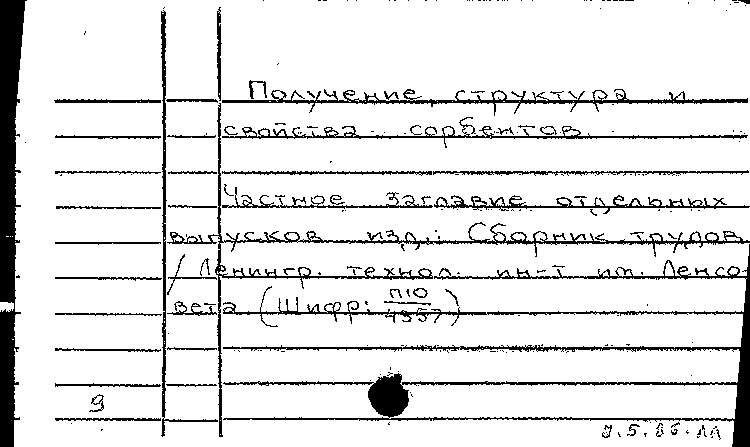 Получение, структура и
свойства сорбентов.
Частное заглавие отдельных
выпусков изд.: Сборник трудов
/ Ленингр. технол. ин-т им. Ленсо-
вета (Шифр: П10/4357)
9